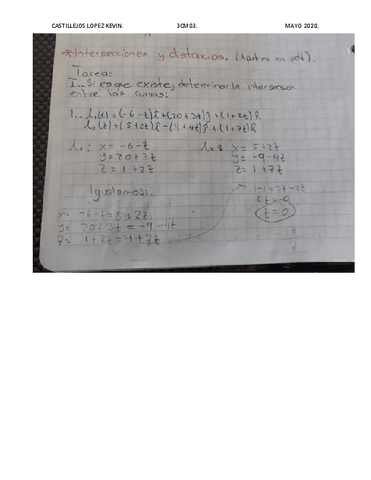 CASTILLEJOS LOPEZ KEVIN. 3CM03. MAYO 2020.
*Intersecciones y distancias. (
Tarea:
I.- Si es que existe, determinar la intersección
entre las curvas:
1.- l₁(t) = (-6-t)î + (20+3t)ĵ + (1+2t)k̂
l₂(t) = (5+2t)î - (9+4t)ĵ + (1+7t)k̂
l₁: x = -6-t
y = 20+3t
z = 1+2t
l₂: x = 5+2t
y = -9-4t
z = 1+7t
Igualamos:
x= -6-t = 5+2t
y= 20+3t = -9-4t
z= 1+2t = 1+7t
1-1 = 7t-2t
5t = 0
t = 0